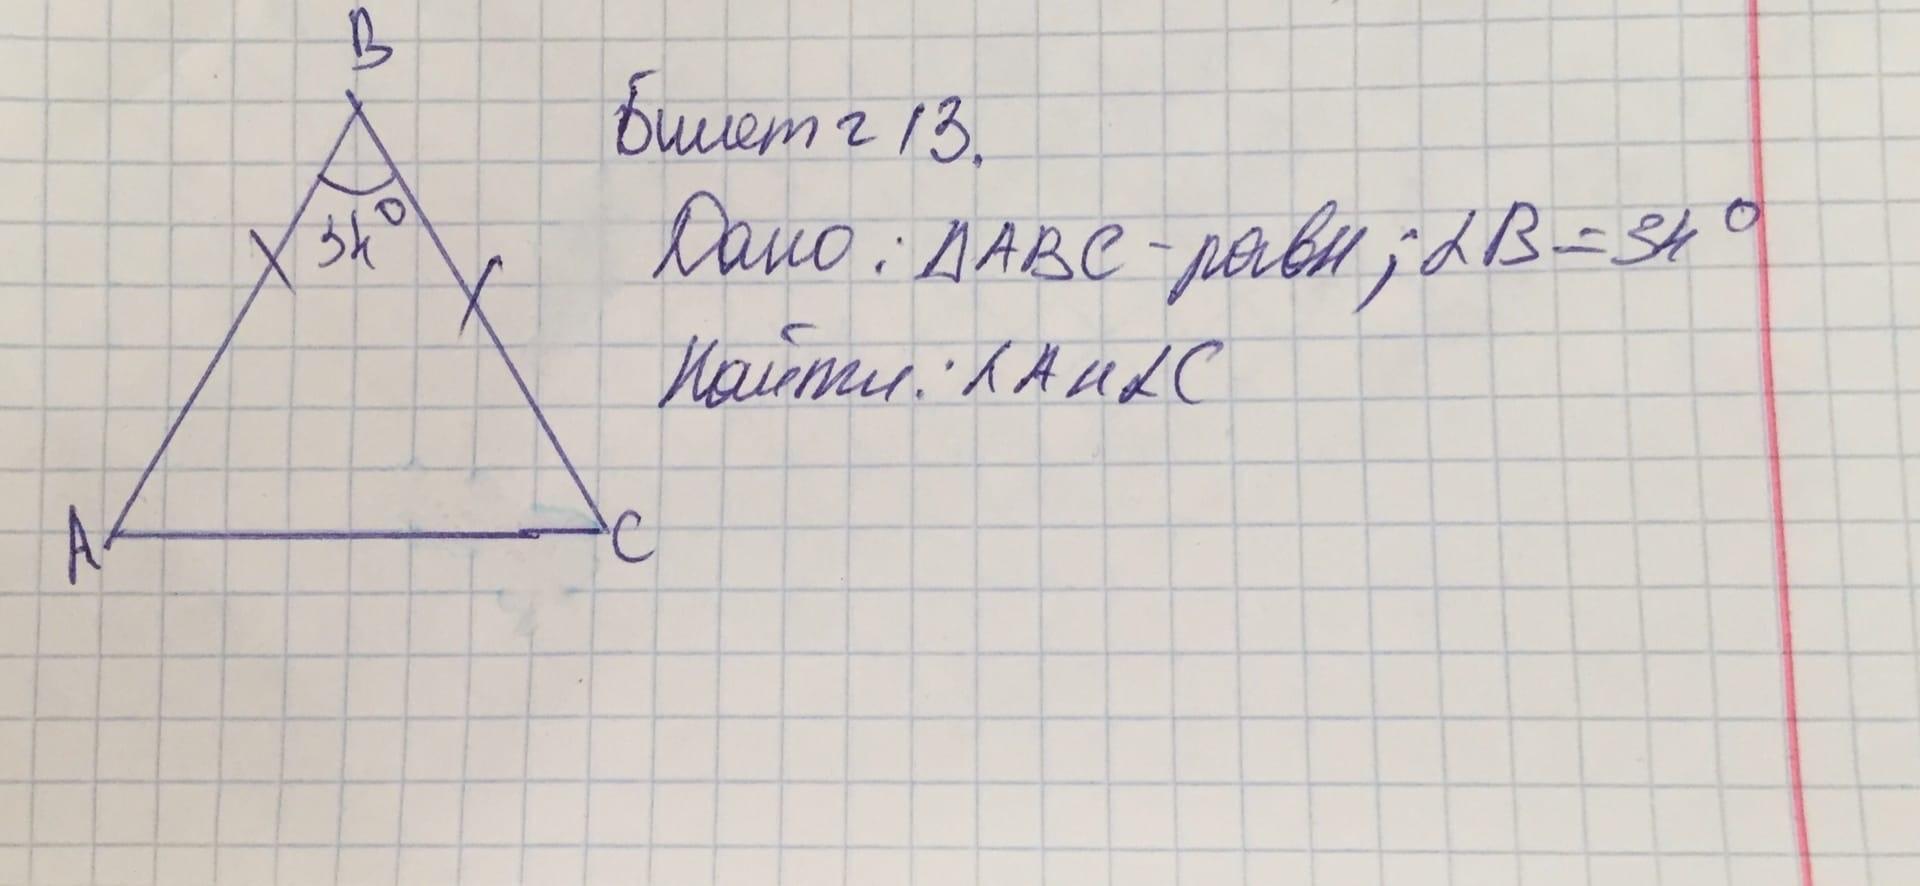 B
34°
A
C
Билет г 13.
Дано: ΔABC - равн; ∠B = 34°
Найти: ∠A и ∠C